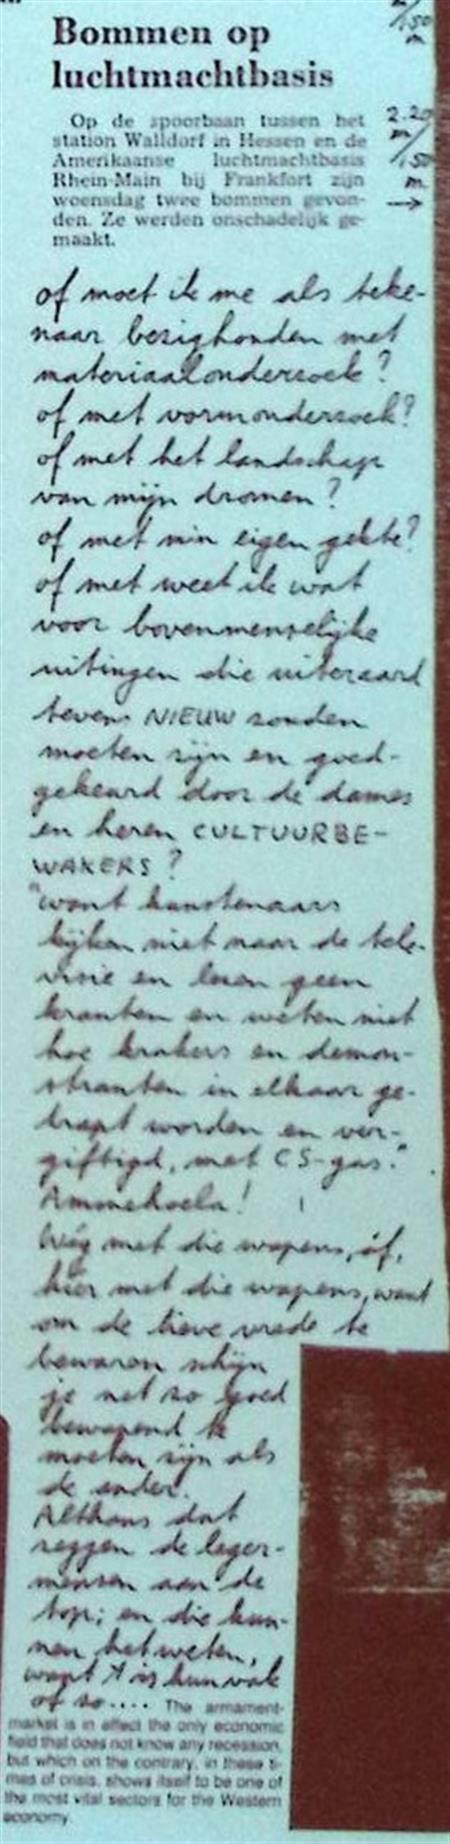 Bommen op
luchtmachtbasis
Op de spoorbaan tussen het
station Walldorf in Hessen en de
Amerikaanse luchtmachtbasis
Rhein-Main bij Frankfort zijn
woensdag twee bommen gevon-
den. Ze werden onschadelijk ge-
maakt.
150
m
2.20
m
150
m
→
of moet ik me als teke-
naar bezighouden met
materiaalonderzoek?
of met vormonderzoek?
of met het landschap
van mijn dromen?
of met mijn eigen gekte?
of met weet ik wat
voor bovenmenselijke
uitingen die uiteraard
tevens NIEUW zouden
moeten zijn en goed-
gekeurd door de dames
en heren CULTUURBE-
WAKERS?
"want kunstenaars
kijken niet naar de tele-
visie en lezen geen
kranten en weten niet
hoe krakers en demon-
stranten in elkaar ge-
trapt worden en ver-
giftigd, met CS-gas."
Ammehoela!
Wég met die wapens, óf,
hier met die wapens, want
om de lieve vrede te
bewaren schijn
je net zo goed
bewapend te
moeten zijn als
de ander.
Althans dat
zeggen de leger-
mensen aan de
top; en die kun-
nen het weten,
want 't is hun vak
of zo.... The armament-
market is in effect the only economic
field that does not know any recession,
but which on the contrary, in these ti-
mes of crisis, shows itself to be one of
the most vital sectors for the Western
economy.